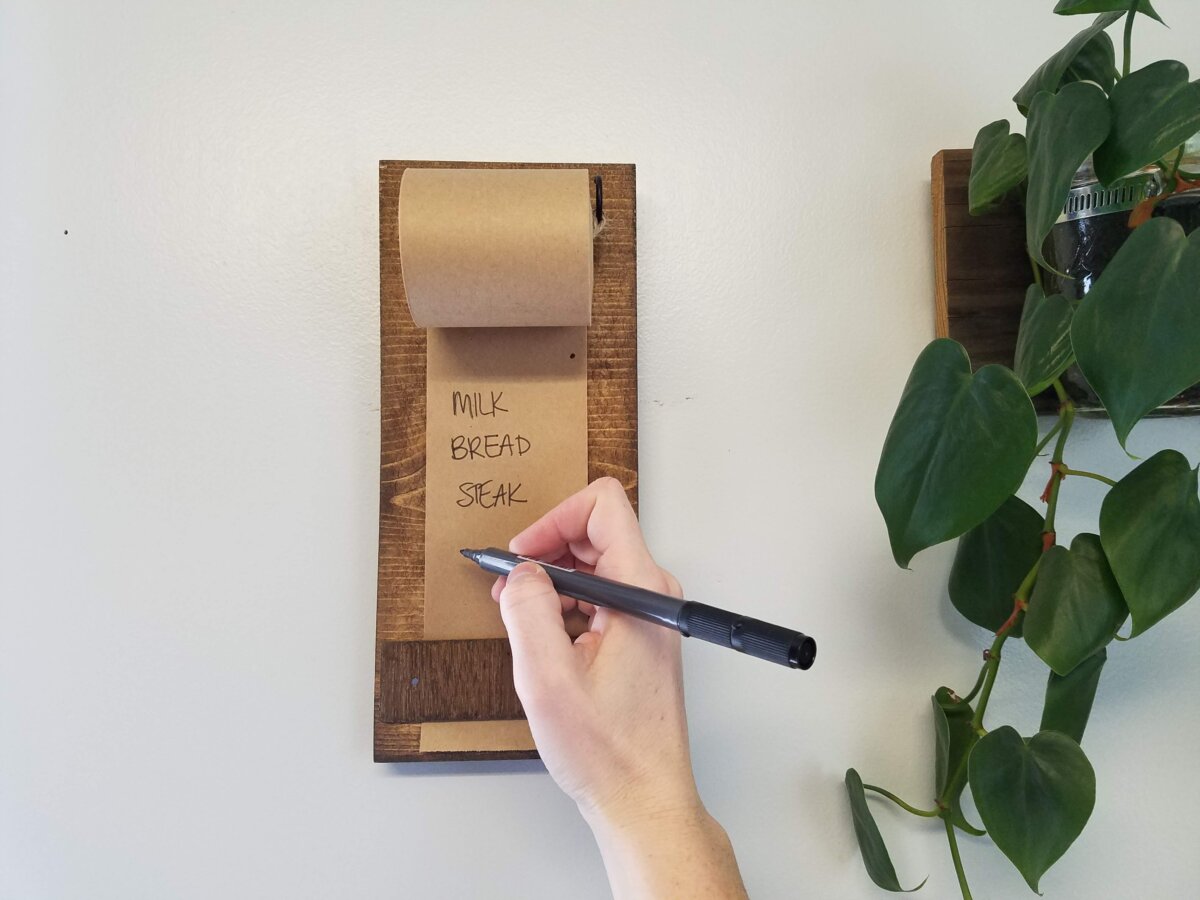 MILK
BREAD
STEAK